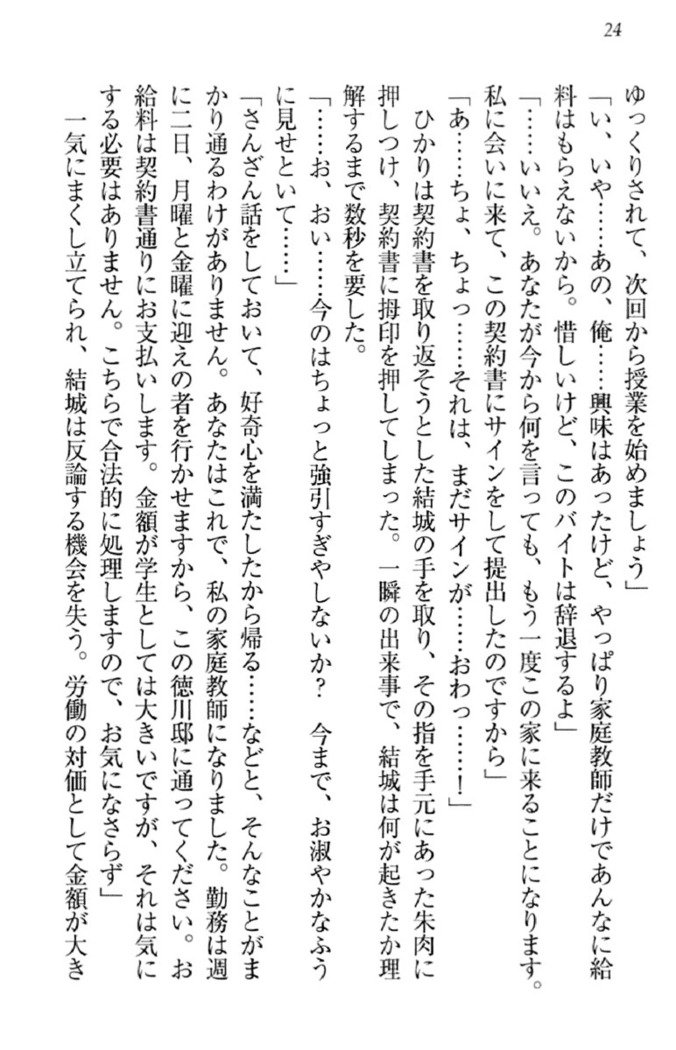 24
ゆっくりされて、次回から授業を始めましょう」
「い、いや……あの、俺……興味はあったけど、やっぱり家庭教師だけであんなに給
料はもらえないから。惜しいけど、このバイトは辞退するよ」
「……いいえ。あなたが今から何を言っても、もう一度この家に来ることになります。
私に会いに来て、この契約書にサインをして提出したのですから」
「あ……ちょ、ちょっ……それは、まだサインが……おわっ……！」
ひかりは契約書を取り返そうとした結城の手を取り、その指を手元にあった朱肉に
押しつけ、契約書に拇印を押してしまった。一瞬の出来事で、結城は何が起きたか理
解するまで数秒を要した。
「……お、おい……今のはちょっと強引すぎやしないか？　今まで、お淑やかなふう
に見せといて……」
「さんざん話をしておいて、好奇心を満たしたから帰る……などと、そんなことがま
かり通るわけがありません。あなたはこれで、私の家庭教師になりました。勤務は週
に二日、月曜と金曜に迎えの者を行かせますから、この徳川邸に通ってください。お
給料は契約書通りにお支払いします。金額が学生としては大きいですが、それは気に
する必要はありません。こちらで合法的に処理しますので、お気になさらず」
一気にまくし立てられ、結城は反論する機会を失う。労働の対価として金額が大き